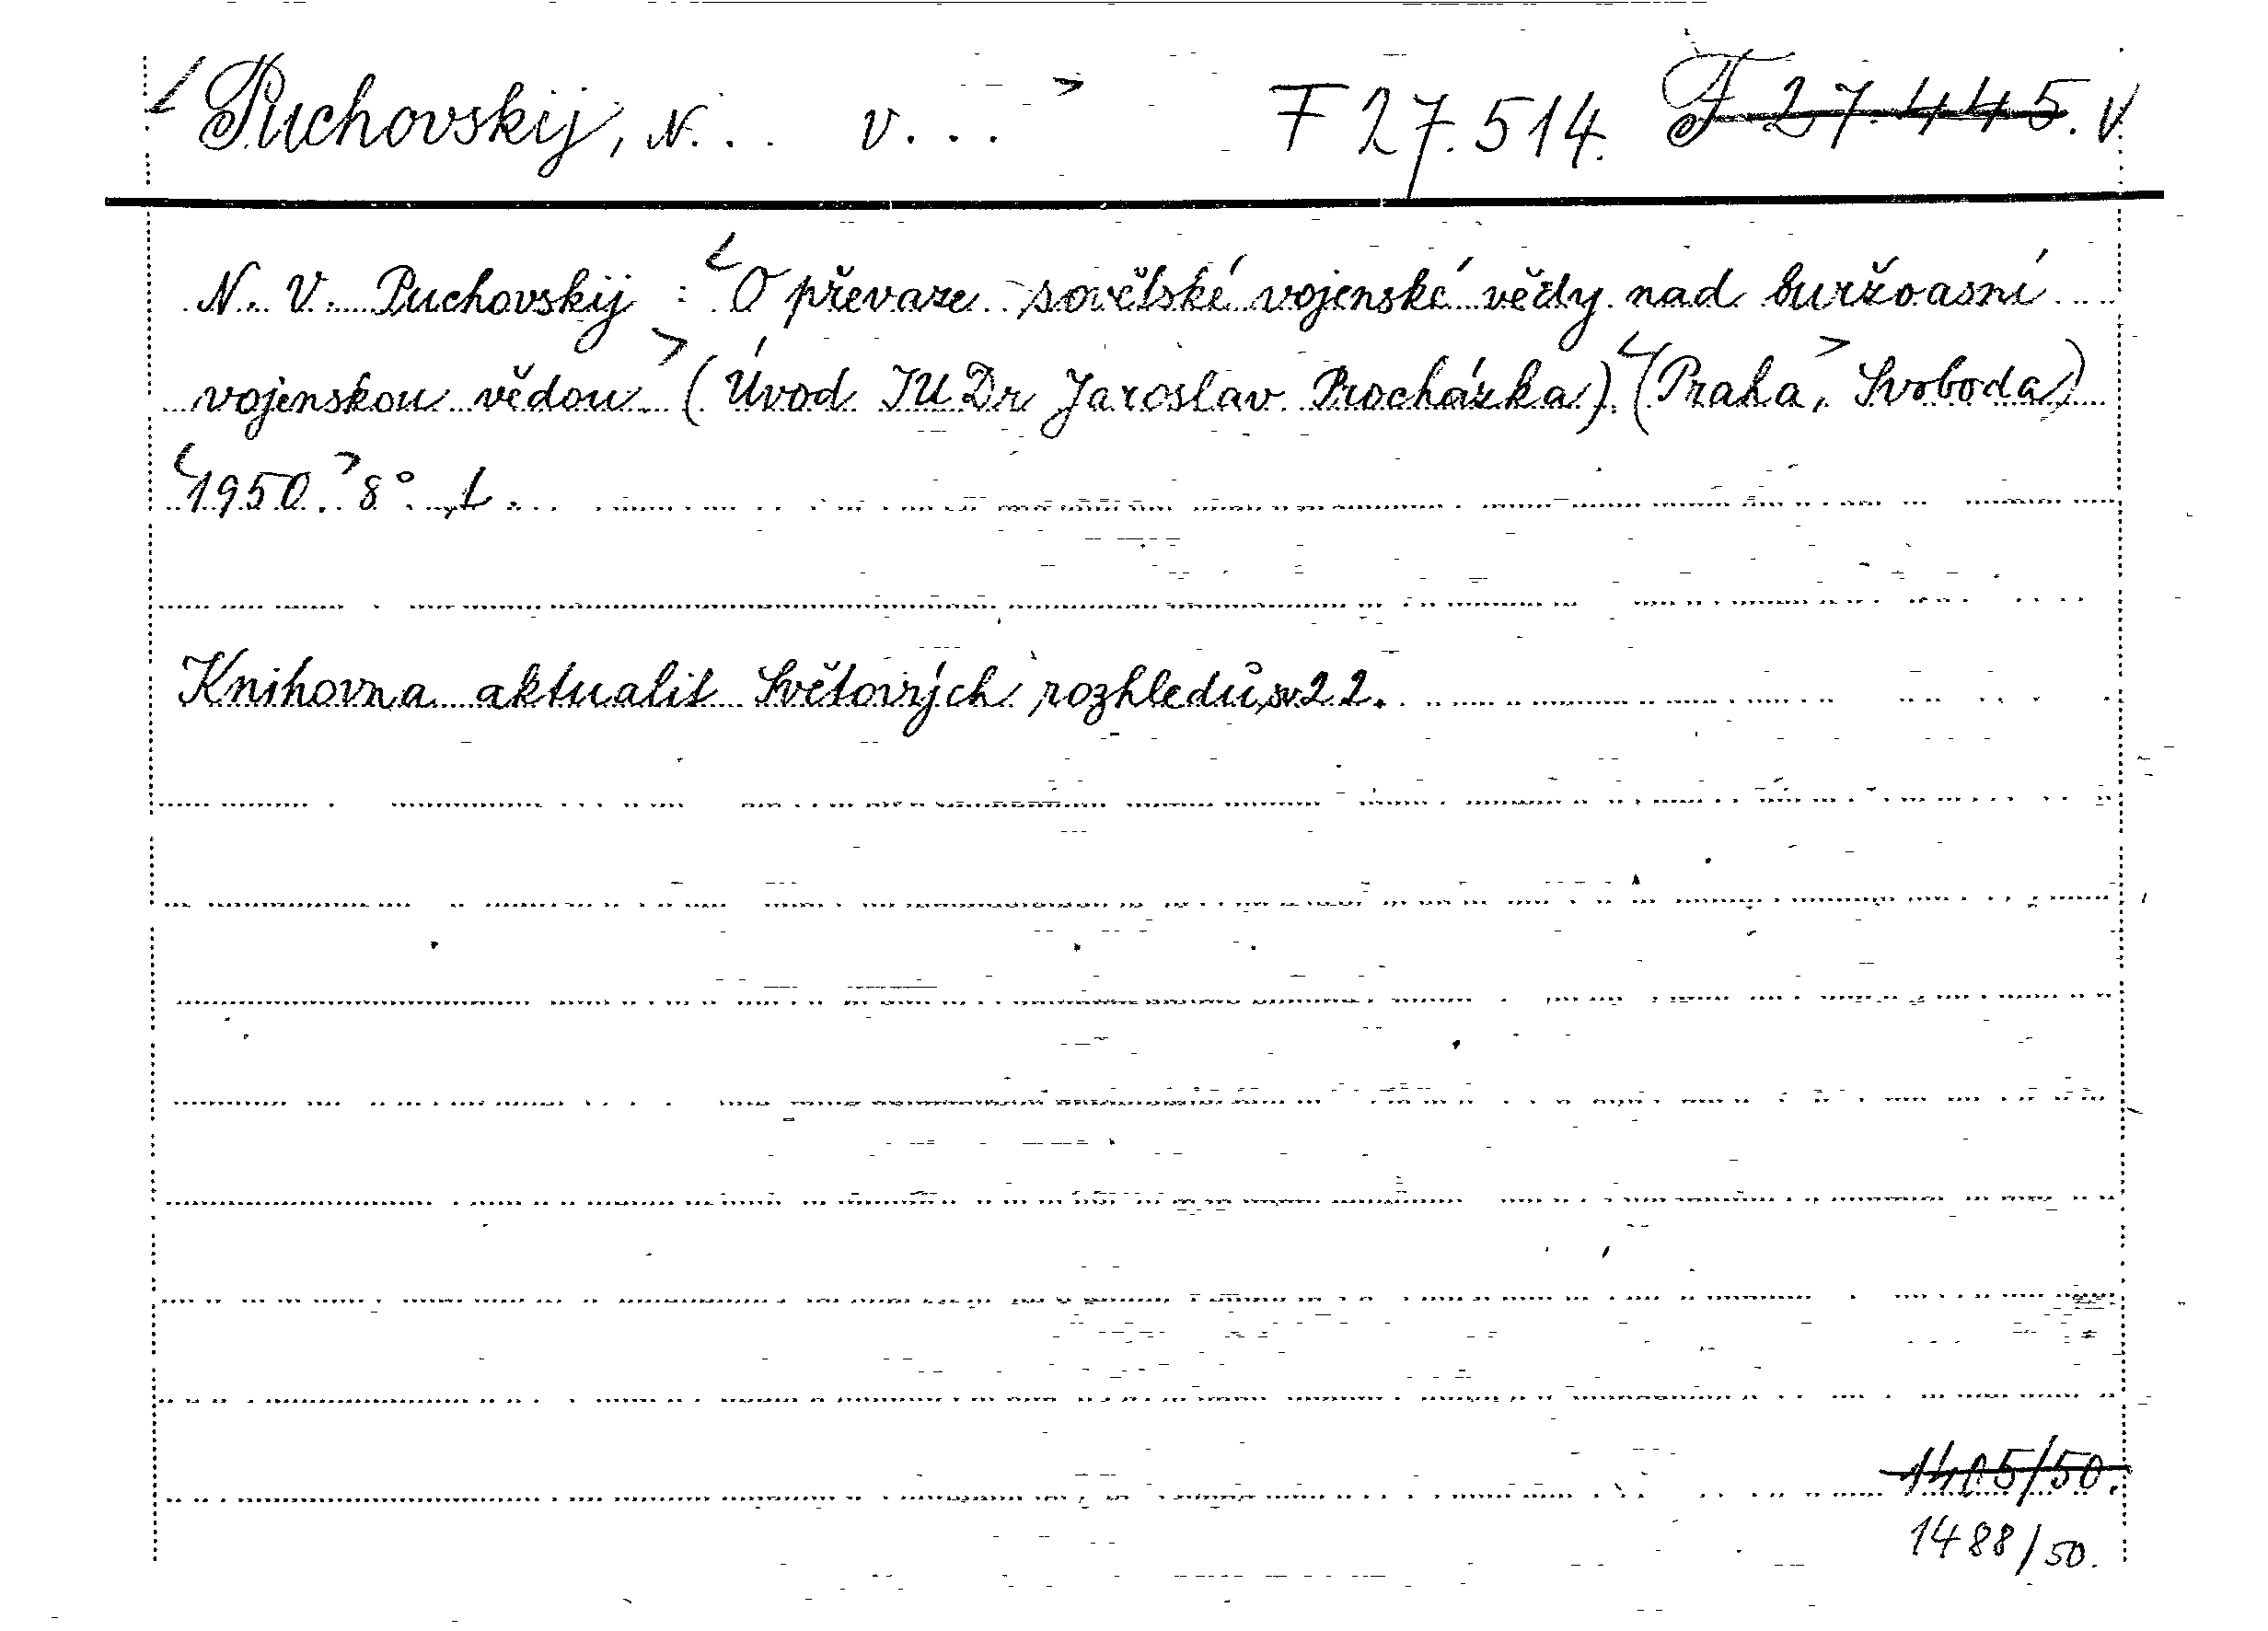 <Puchovskij, N... V...> F 27.514. F 27.445. V.
N. V. Puchovskij : <O převaze sovětské vojenské vědy nad buržoasní
vojenskou vědou.> (Úvod JUDr Jaroslav Procházka). <(Praha,> Svoboda)
<1950.> 8°.
Knihovna aktualit Světových rozhledů, sv 22.
1405/50.
1488/50.